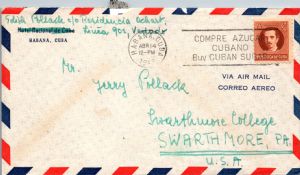 Edith Pollack c/o Residencia Ochart,
Hotel Nacional de Cuba
Linea 905, Vedado
HABANA, CUBA
HABANA, CUBA
ABR 14
12-PM
COMPRE AZUCAR
CUBANO
BUY CUBAN SUGAR
VIA AIR MAIL
CORREO AEREO
Mr. Jerry Pollack
Swarthmore College
SWARTHMORE, PA.
U.S.A.